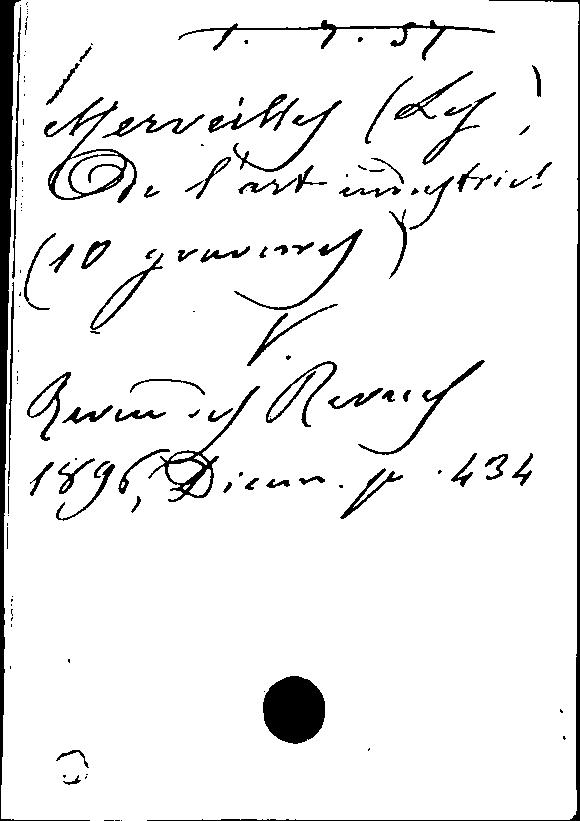 1. 7. 57
Merveilles (Les)
De l'art industriel
(10 gravures)
V.
Revue des Revues
1896, Dicem. p. 434